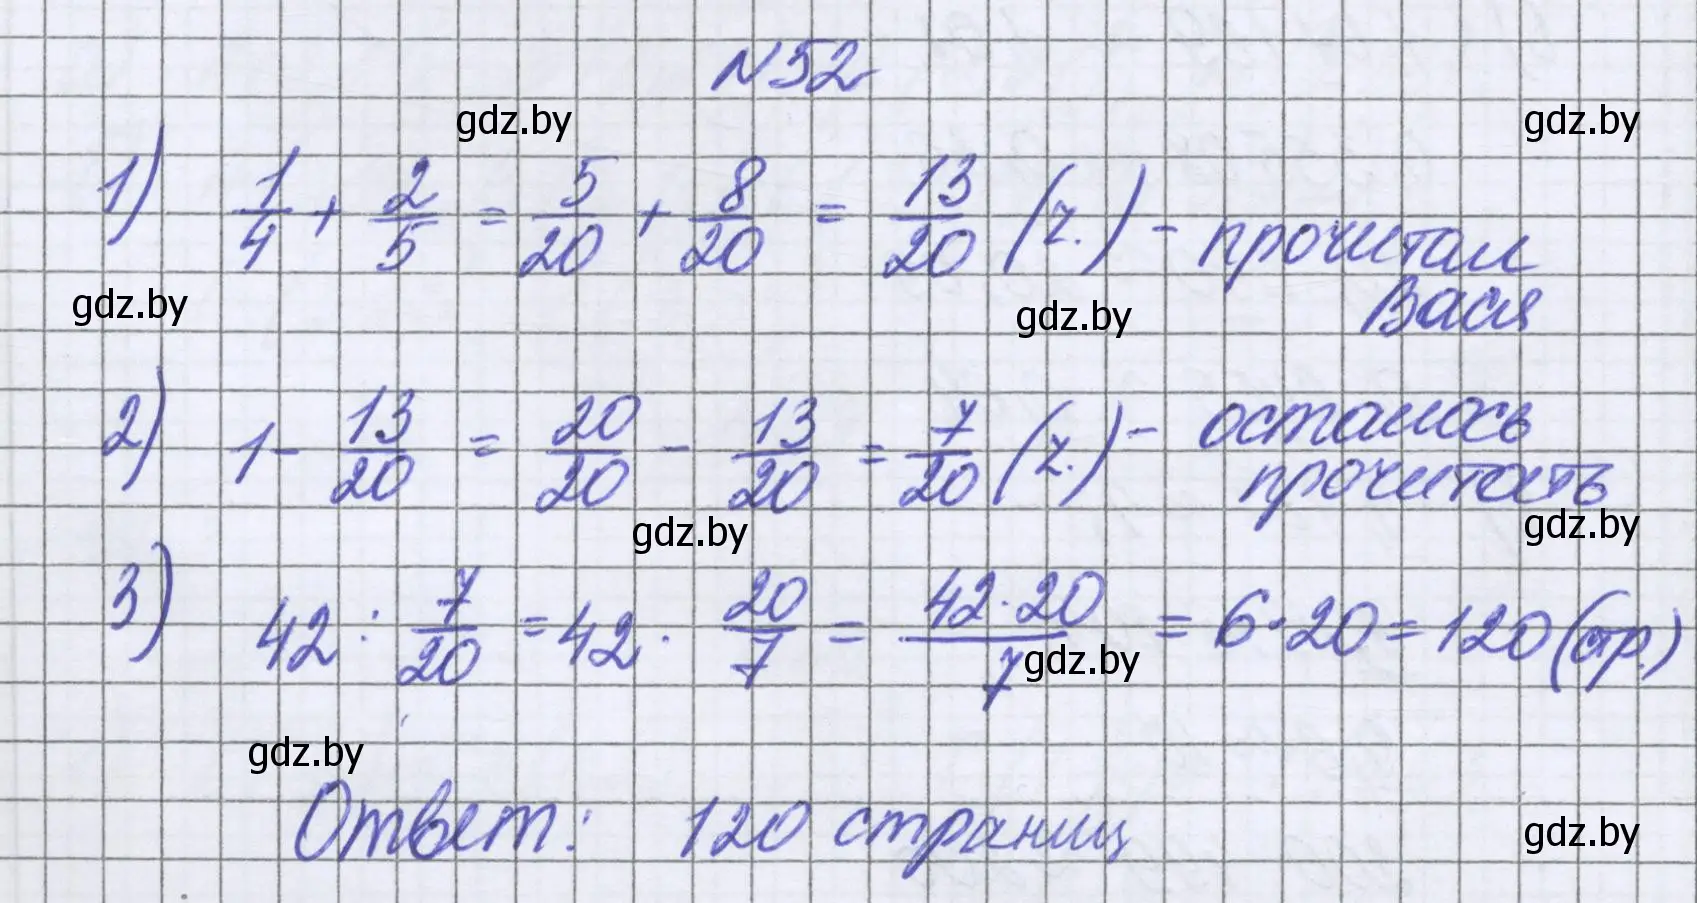 №52
gdz.by
gdz.by
1) 1/4 + 2/5 = 5/20 + 8/20 = 13/20 (ч.) - прочитал
Вася
gdz.by
gdz.by
2) 1 - 13/20 = 20/20 - 13/20 = 7/20 (ч.) - осталось
прочитать
gdz.by
gdz.by
3) 42 : 7/20 = 42 · 20/7 = 42·20/7 = 6·20 = 120 (стр.)
gdz.by
gdz.by
Ответ: 120 страниц
gdz.by